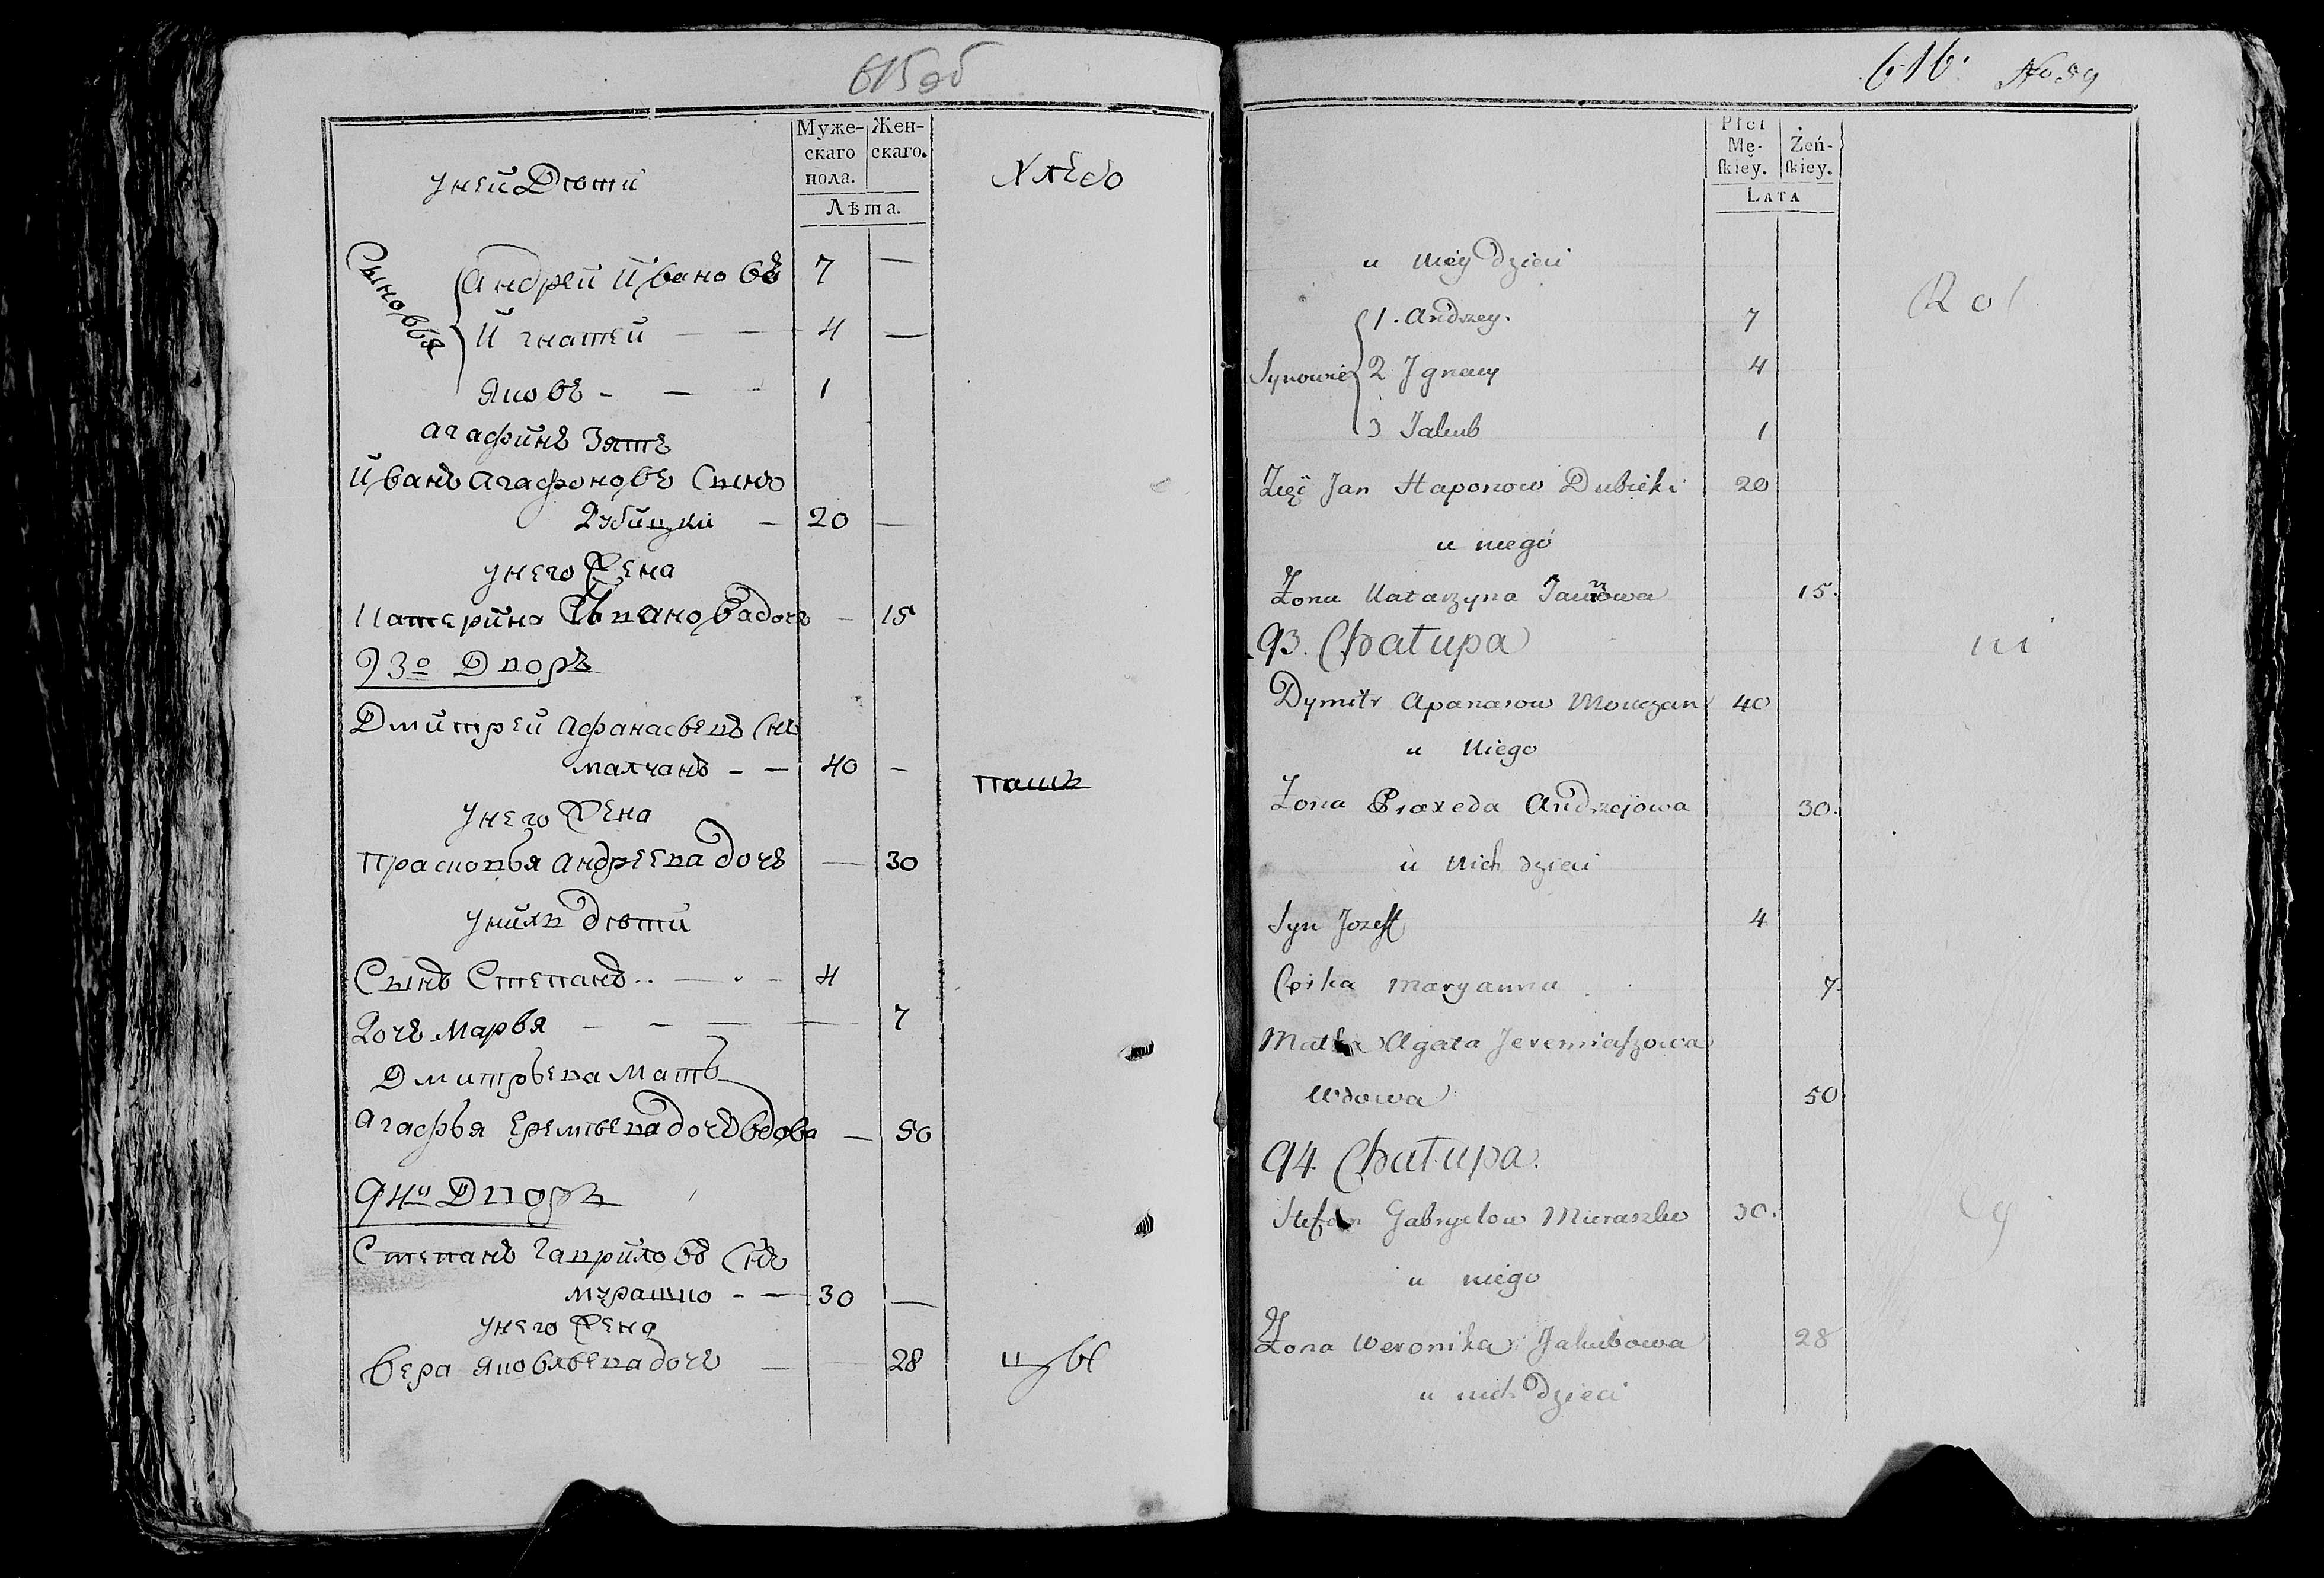 615 об
Муже-
скаго
пола.
Жен-
скаго.
Лѣта.
уней Дѣти
Хлѣбо
Сыновья
Андрей Ивановъ 7 —
Игнатей — — 4 —
Яковъ - — - 1
Агафинъ Зять
Иванъ Агафоновъ Сынъ
Дубицки — 20 —
унего Жена
Катерина Иванова дочь — 15
93о Дворъ
Дмитрей Афанасьевъ Снъ
малчанъ - — 40 —
паш
унего Жена
Прасковья Андреева дочь — 30
унихъ дѣти
Сынъ Степанъ — - 4
Дочь Марья — - — — 7
Дмитрьева Мать
Агафья Еремѣева дочь вдова — 50
94о Дворъ
Степанъ Гавриловъ Снъ
мурашко - — 30 —
унего Жена
Вера Яковлева дочь — 28
цы
616. No 59
Płci
Mę-
skiey.
Żeń-
skiey.
LATA
u niéy dzieci
Rol
Synowie
1. Andrzey. 7
2 Jgnacy 4
3 Jakub 1
Zięć Jan Haponow Dubicki 20
u niego
Żona Katarzyna Janowa 15.
93. Chałupa
ni
Dymitr Apanasow Mouczan 40
u Niego
Żona Praxeda Andrzejowa 30.
u Nich dzieci
Syn Jozeff 4
Córka Maryanna 7.
Matka Agata Jeremiaszowa
Wdowa 50.
94 Chałupa.
Stefan Gabryelow Muraszko 30.
cy
u niego
Żona Weronika Jakubowa 28
u nich Dzieci